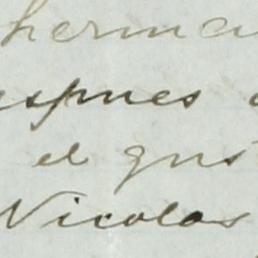 herma
espues
el gus
Nicolas